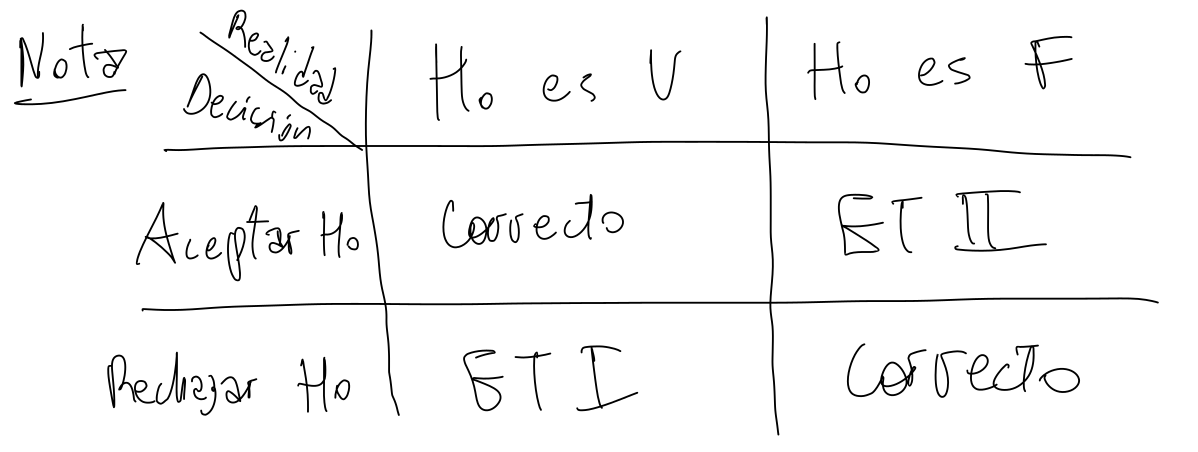 Nota
Realidad
Decisión
Ho es V
Ho es F
Aceptar Ho
Correcto
ET II
Rechazar Ho
ET I
Correcto